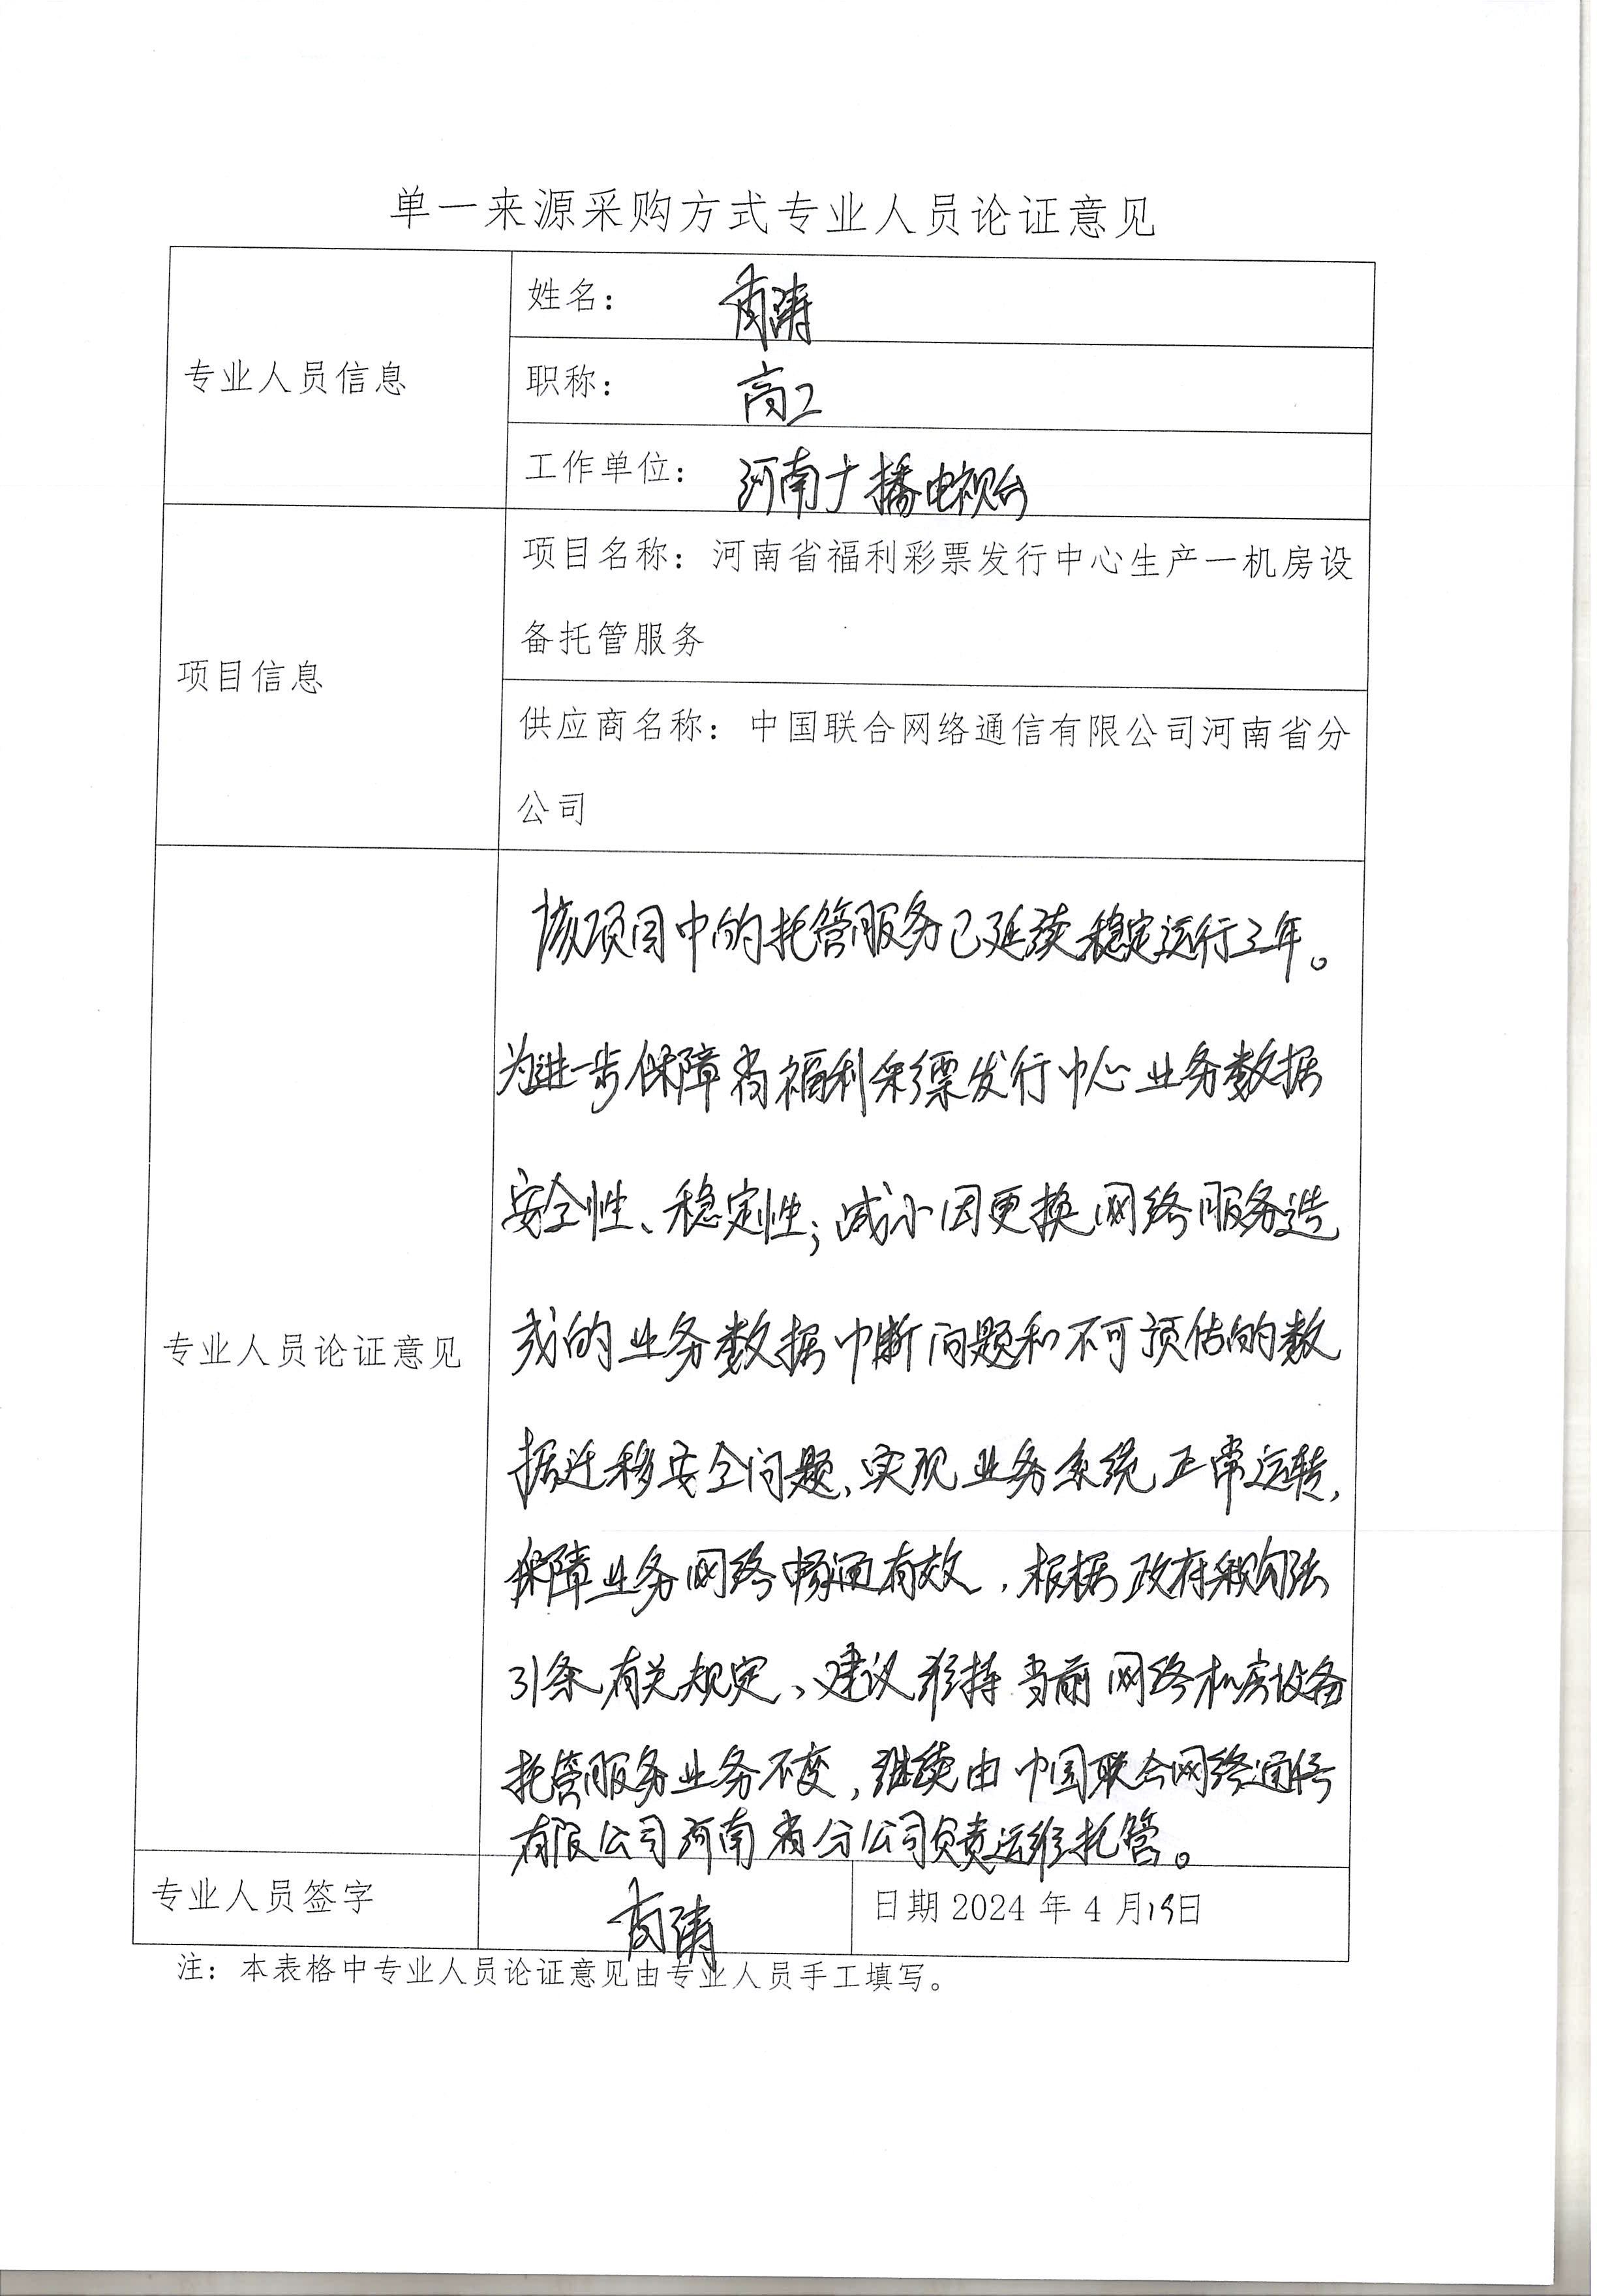 单一来源采购方式专业人员论证意见
专业人员信息
姓名：
职称：高工
工作单位：河南广播电视台
项目信息
项目名称：河南省福利彩票发行中心生产一机房设
备托管服务
供应商名称：中国联合网络通信有限公司河南省分
公司
专业人员论证意见
该项目中的托管服务已延续稳定运行三年。
为进一步保障省福利彩票发行中心业务数据
安全性、稳定性；减小因更换网络服务造
成的业务数据中断问题和不可预估的数
据迁移安全问题，实现业务系统正常运转，
保障业务网络畅通有效，根据政府采购法
31条有关规定、建议维持当前网络机房设备
托管服务业务不变，继续由中国联合网络通信
有限公司河南省分公司负责运维托管。
专业人员签字
日期 2024 年 4 月 日
注：本表格中专业人员论证意见由专业人员手工填写。